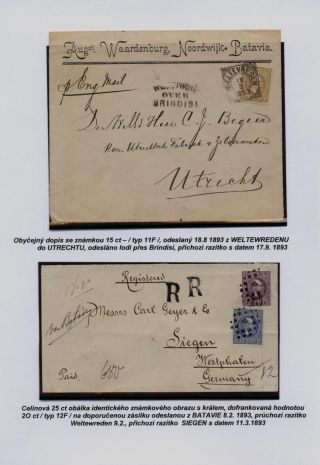 Augst. Waardenburg, Noordwijk-Batavia.
p Eng. Mail
OVER
BRINDISI
WELTEVREDEN
Den Well Heer C. J. Begeer
Kon. Utrechtsche Fabriek v Zilverwerken
Utrecht
Obyčejný dopis se známkou 15 ct – / typ 11F /, odeslaný 18.8 1893 z WELTEWREDENU
do UTRECHTU, odesláno lodí přes Brindisi, příchozí razítko s datem 17.9. 1893
Registered
R R
Messrs Carl Geyer & Co
Siegen
Westphalen
Germany
Paid
Celinová 25 ct obálka identického známkového obrazu s králem, dofrankovaná hodnotou
2O ct / typ 12F / na doporučenou zásilku odeslanou z BATAVIE 8.2. 1893, průchozí razítko
Weltewreden 9.2., příchozí razítko SIEGEN s datem 11.3.1893